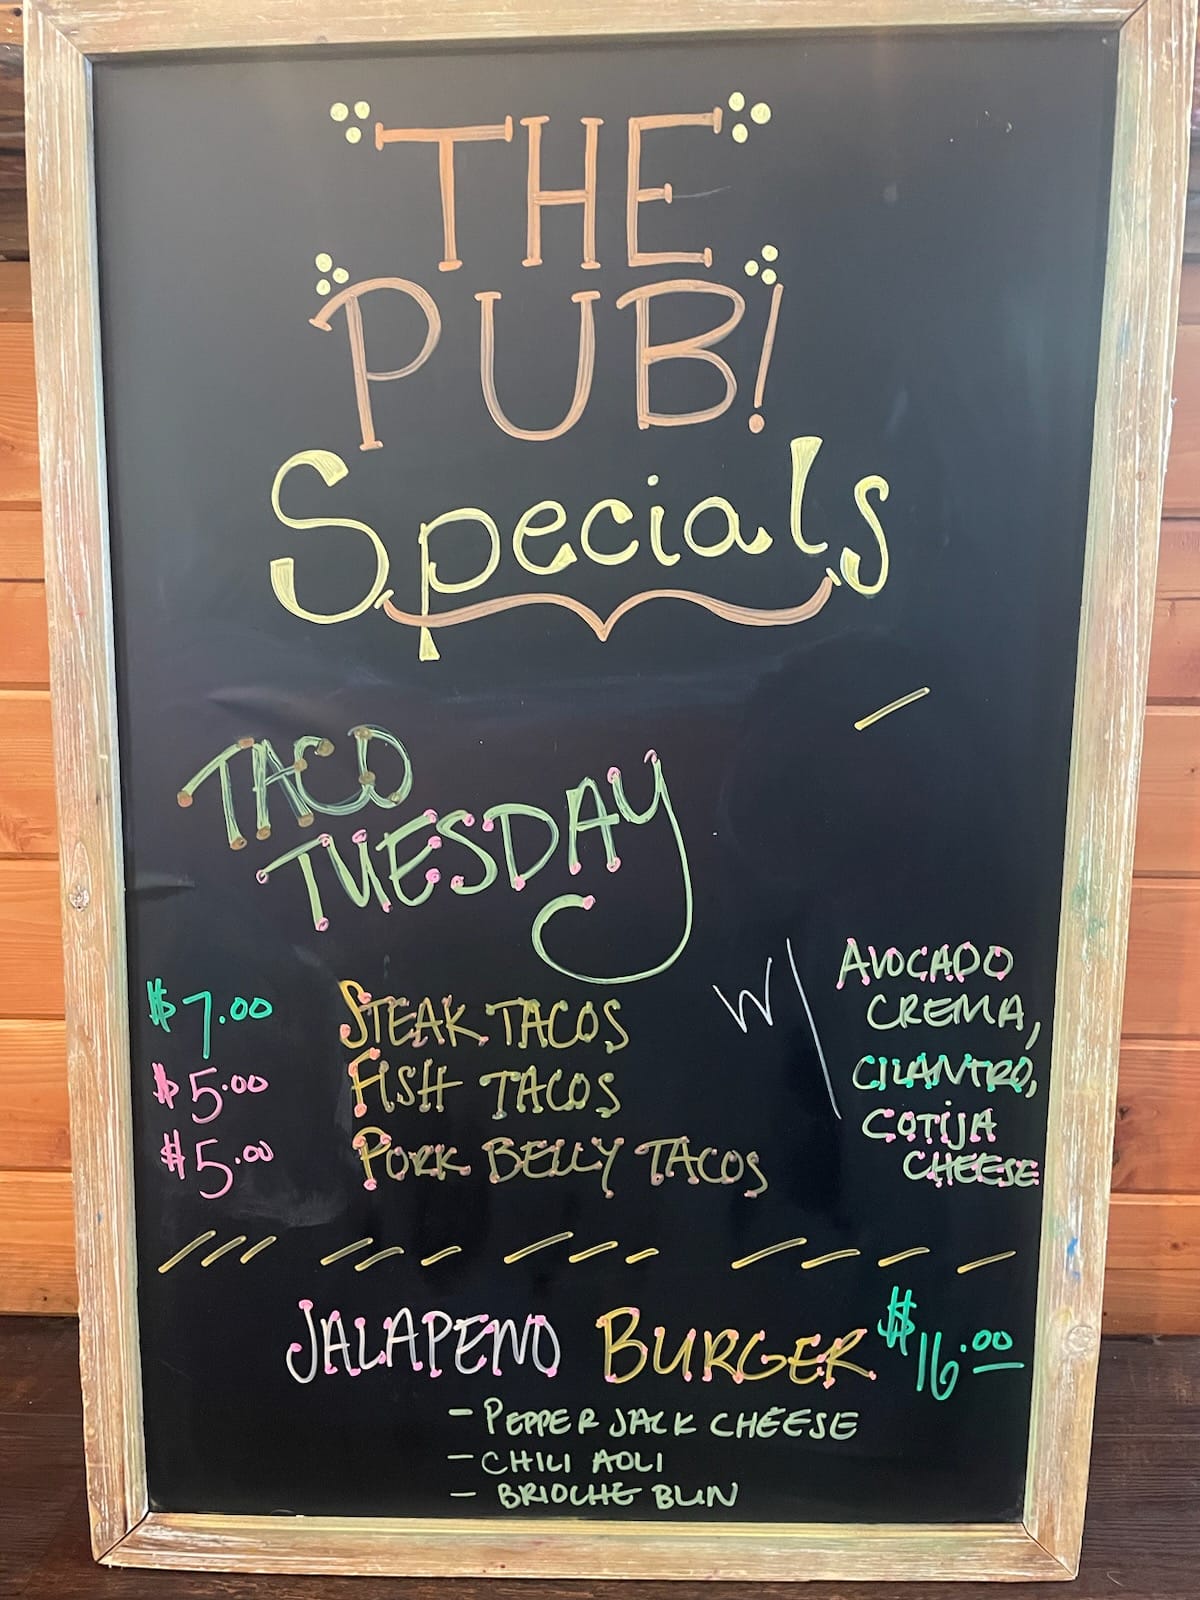 THE
PUB!
Specials
TACO
TUESDAY
$7.00 STEAK TACOS W/ AVOCADO
CREMA,
$5.00 FISH TACOS CILANTRO,
COTIJA
$5.00 PORK BELLY TACOS CHEESE
JALAPENO BURGER $16.00
- PEPPER JACK CHEESE
- CHILI AOLI
- BRIOCHE BUN